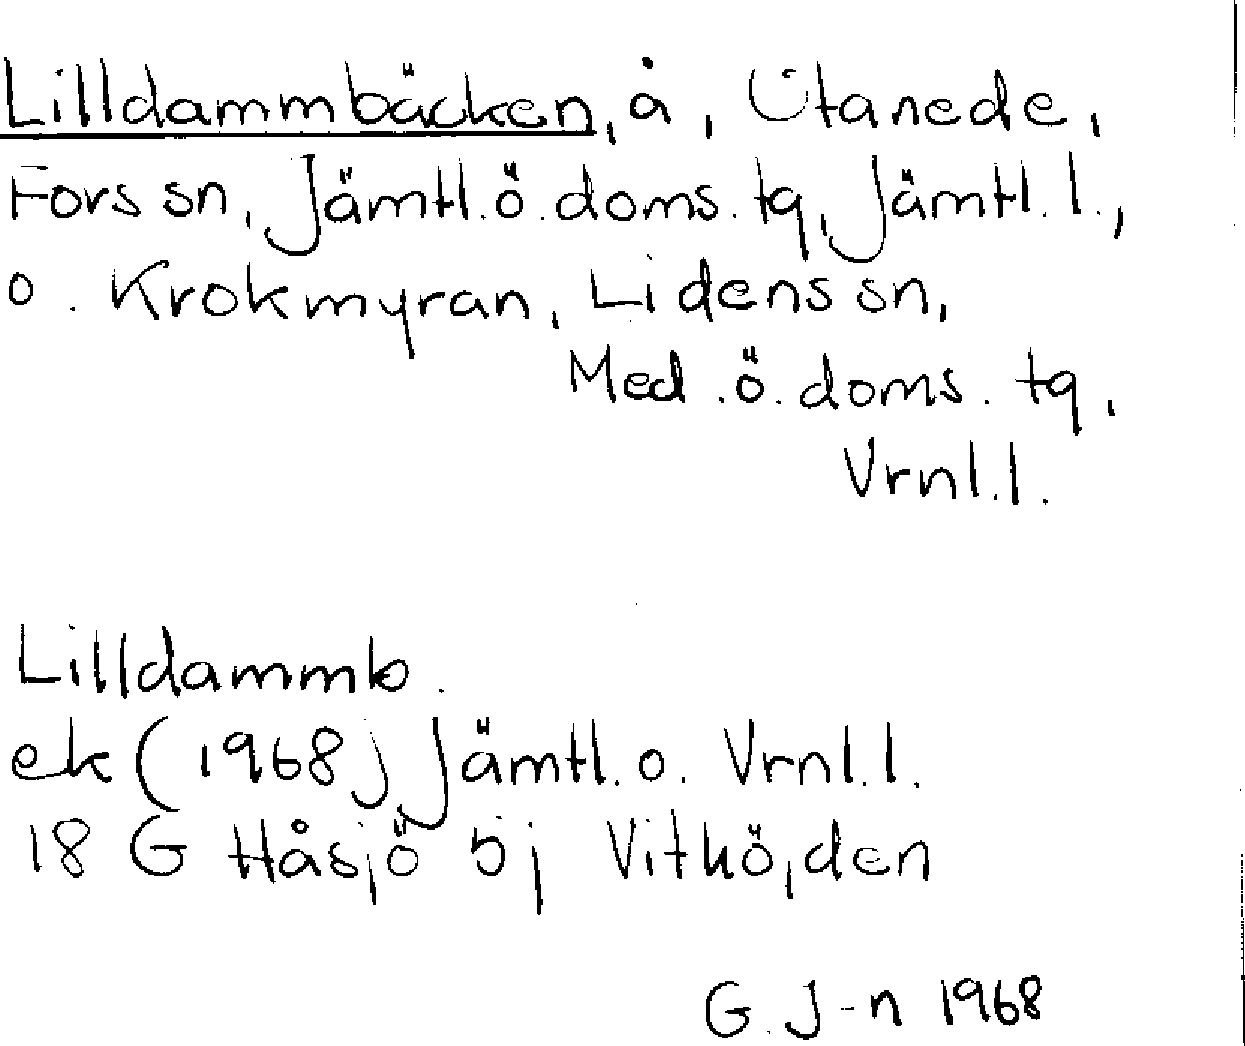 Lilldammbäcken, å, Utanede,
Fors sn, Jämtl.ö.doms.tg, Jämtl.l.,
o. Krokmyran, Lidens sn,
Med.ö.doms.tg,
Vrnl.l.
Lilldammb.
ek (1968) Jämtl.o. Vrnl.l.
18 G Håsjö 5j Vithöjden
G.J-n 1968